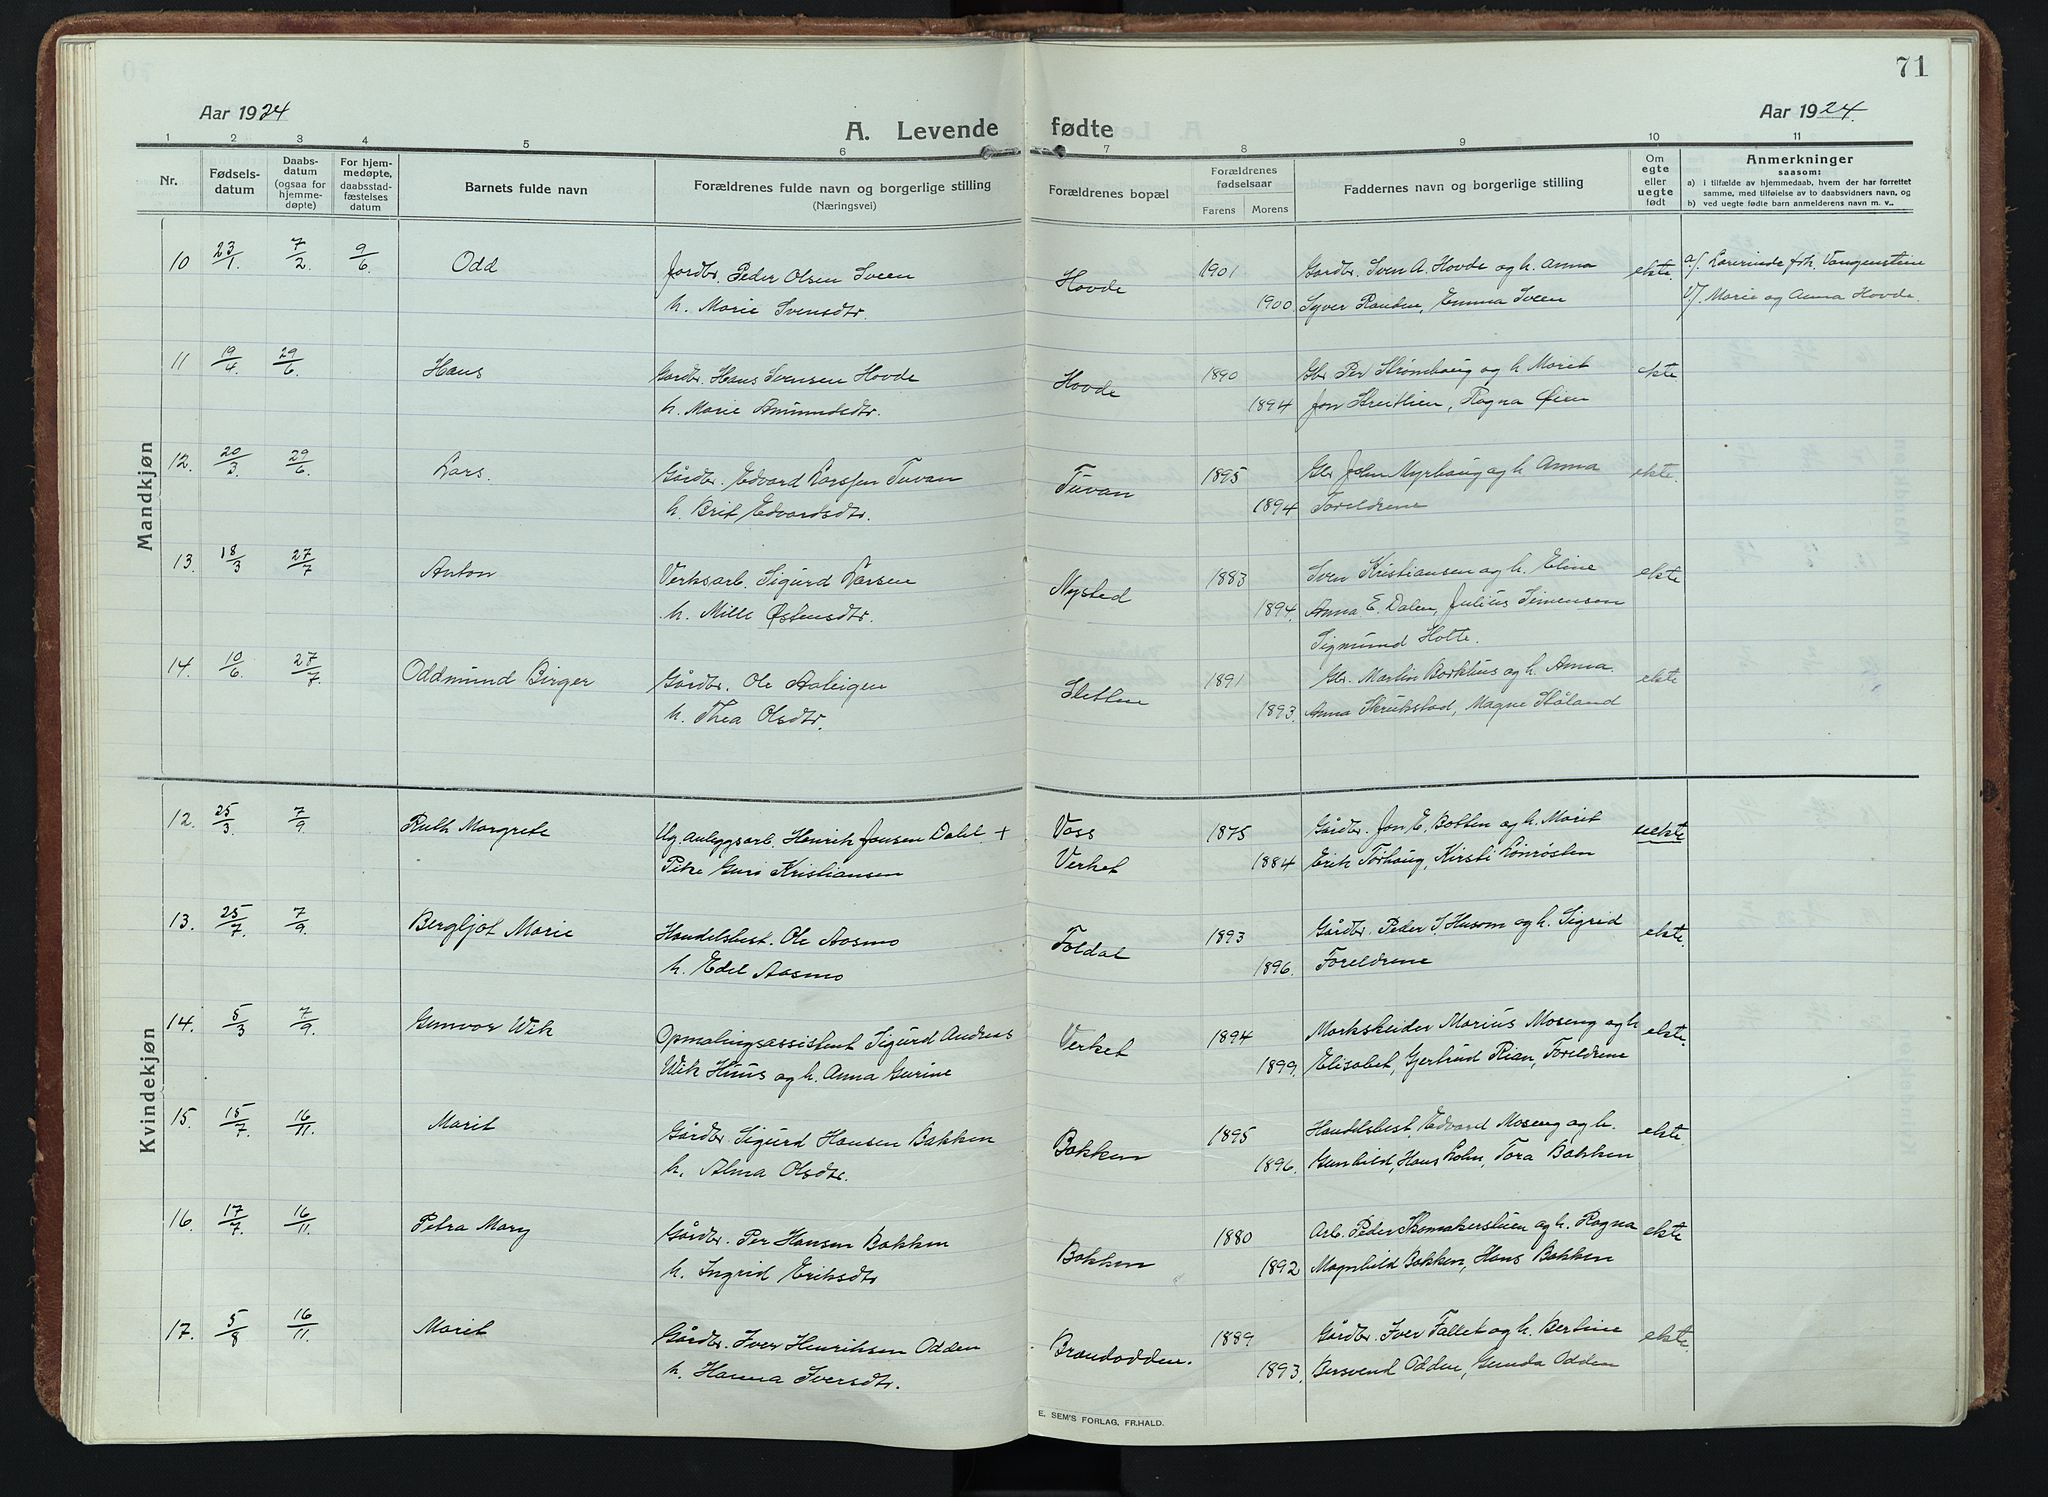 71
Aar 1924
A. Levende fødte
Aar 1924.
1 2 3 4 5 6 7 8 9 10 11
Nr.
Fødsels-
datum
Daabs-
datum
(ogsaa for
hjemme-
døpte)
For hjem-
medøpte,
daabsstad-
fæstelses
datum
Barnets fulde navn
Forældrenes fulde navn og borgerlige stilling
(Næringsvei)
Forældrenes bopæl
Forældrenes
fødselsaar
Farens Morens
Faddernes navn og borgerlige stilling
Om
egte
eller
uegte
født
Anmerkninger
saasom:
a) i tilfælde av hjemmedaab, hvem der har forrettet
samme, med tilføielse av to daabsvidners navn, og
b) ved uegte fødte barn anmelderens navn m. v..
Mandkjøn
10 23/1 7/2 9/6 Odd Jordbr. Peder Olsen Sveen Hovde 1901 Gardbr. Sven A. Hovde og h. Anna ekte a/. Lærerinde frk. Vangensteine
h. Marie Svensdtr. 1900. Syver Randen, Emma Sveen V/. Marie og Anna Hovde.
11 19/4 29/6 Hans Gardbr. Hans Svensen Hovde Hovde 1890 Gbr. Per Strømhaug og h. Marit ekte
h. Marie Amundsdtr. 1894 Jon Streitlien, Ragna Øien
12. 20/3 29/6 Lars. Gårdbr. Edvard Larssen Tuvan Tuvan 1895 Gbr. John Myrhaug og h. Anna ekte.
h. Brit Edvardsdtr. 1894 Foreldrene
13. 18/3 27/7 Anton Verksarb. Sigurd Larsen Nysted 1883 Sven Kristiansen og h. Eline ekte
h. Mille Østensdtr. 1894. Anna E. Dalen, Julius Simensen
Sigmund Holte.
14. 10/6 27/7. Oddmund Birger Gårdbr. Ole Aaleigen Sletten 1891 Gbr. Martin Borkhus og h. Anna ekte
h. Thea Olsdtr. 1893. Anna Skrukstad, Magne Ståland
Kvindekjøn
12. 25/3. 7/9 Ruth Margrete Ug. anleggsarb. Henrik Jonsen Dalel + Voss 1875 Gårdbr. Jon E. Botten og h. Marit uekte
Pike Guro Kristiansen Verket 1884 Erik Torhaug, Kirsti Lonrøsten
13. 25/7. 7/9. Bergljot Marie Handelsbest. Ole Aasmo Foldal 1893 Gårdbr. Peder S. Husom og h. Sigrid ekte.
h. Edel Aasmo 1896. Foreldrene
14. 5/3 7/9. Gunvor Wik Opmålingsassistent Sigurd Andreas Verket 1894 Markskeider Marius Moseng og h ekte.
Wik Huus og h. Anna Gurine 1899. Elisabet, Gjertrud Rian, Foreldrene
15. 15/7. 16/11. Marit Gårdbr. Sigurd Hansen Bakken Bakken 1895 Handelsbest. Edvard Moseng og h. ekte.
h. Alma Olsdtr. 1896. Gunhild, Hans Holm, Tora Bakken
16. 17/7. 16/11. Petra Mary Gårdbr. Per Hansen Bakken Bakken 1880 Arb. Peder Skomakerstuen og h. Ragna ekte
h. Ingrid Eriksdtr 1892 Magnhild Bakken, Hans Bakken
17. 5/8 16/11. Marit Gårdbr. Iver Henriksen Odden Brandodden. 1889 Gårdbr. Iver Fallet og h. Bertine ekte.
h. Hanna Iversdtr. 1893. Bersvend Odden, Gunda Odden
E. SEM'S FORLAG, FR.HALD.